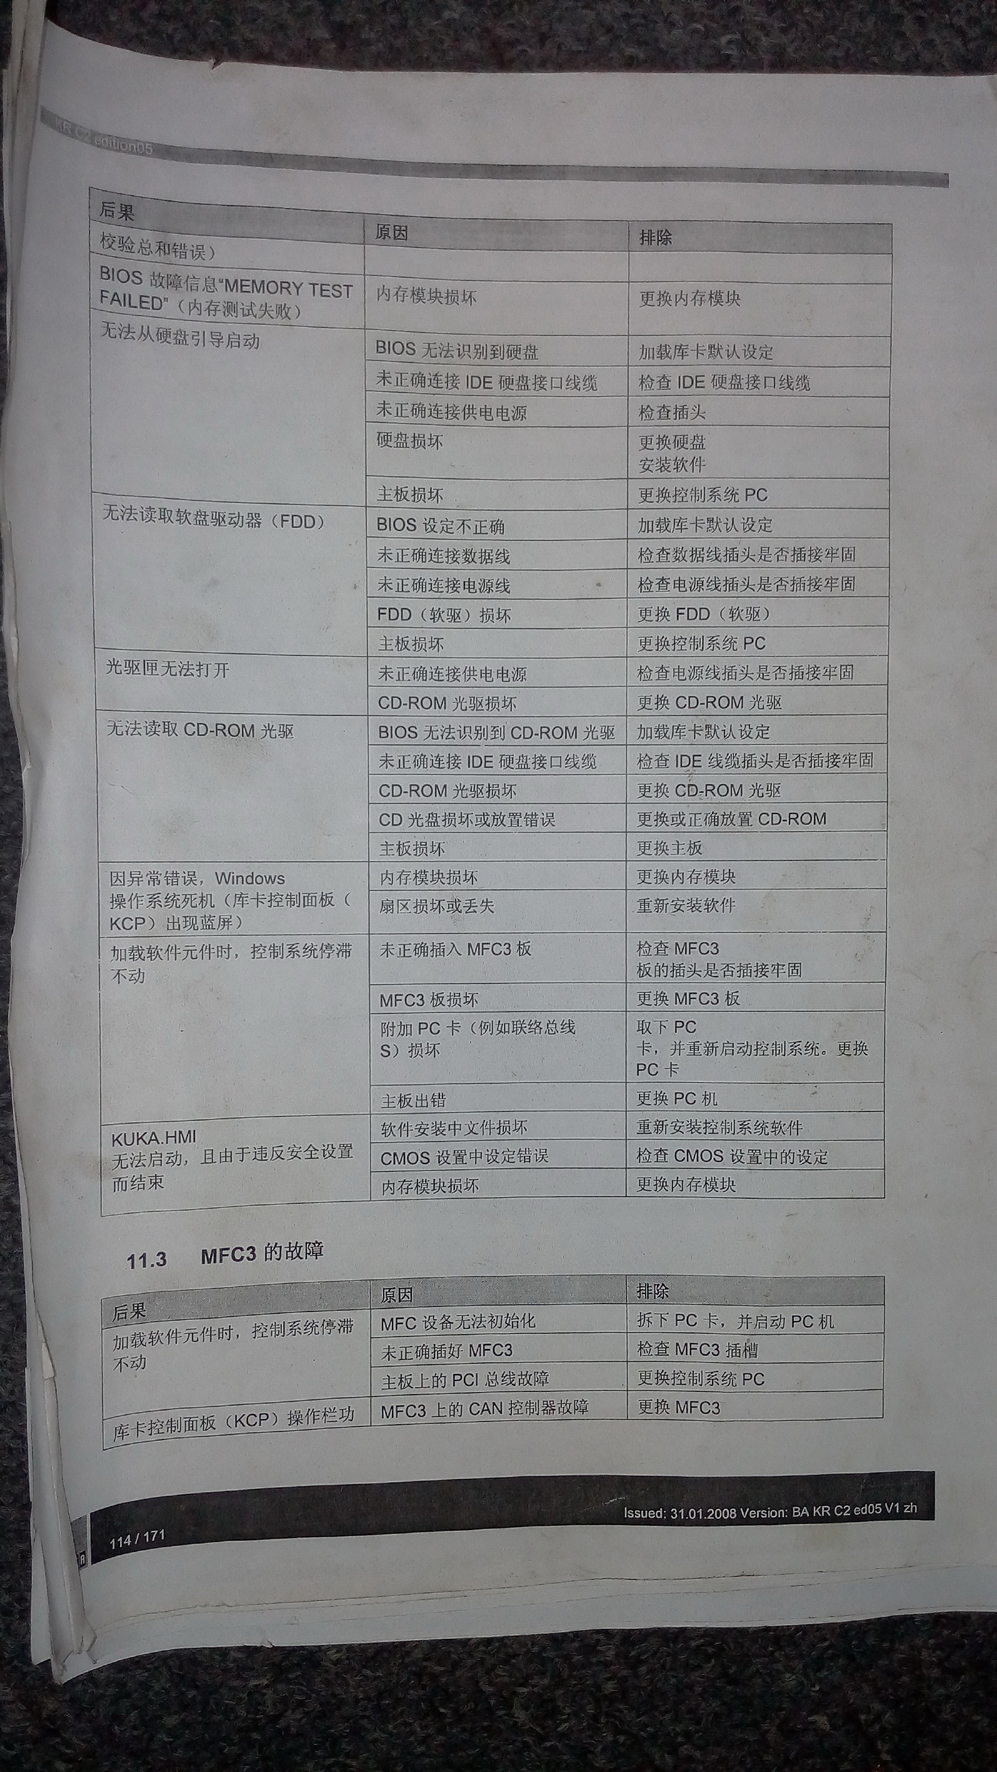 KR C2 edition05
后果 原因 排除
校验总和错误）
BIOS 故障信息“MEMORY TEST
FAILED”（内存测试失败） 内存模块损坏 更换内存模块
无法从硬盘引导启动 BIOS 无法识别到硬盘 加载库卡默认设定
未正确连接 IDE 硬盘接口线缆 检查 IDE 硬盘接口线缆
未正确连接供电电源 检查插头
硬盘损坏 更换硬盘
安装软件
主板损坏 更换控制系统 PC
无法读取软盘驱动器（FDD） BIOS 设定不正确 加载库卡默认设定
未正确连接数据线 检查数据线插头是否插接牢固
未正确连接电源线 检查电源线插头是否插接牢固
FDD（软驱）损坏 更换 FDD（软驱）
主板损坏 更换控制系统 PC
光驱匣无法打开 未正确连接供电电源 检查电源线插头是否插接牢固
CD-ROM 光驱损坏 更换 CD-ROM 光驱
无法读取 CD-ROM 光驱 BIOS 无法识别到 CD-ROM 光驱 加载库卡默认设定
未正确连接 IDE 硬盘接口线缆 检查 IDE 线缆插头是否插接牢固
CD-ROM 光驱损坏 更换 CD-ROM 光驱
CD 光盘损坏或放置错误 更换或正确放置 CD-ROM
主板损坏 更换主板
因异常错误，Windows 内存模块损坏 更换内存模块
操作系统死机（库卡控制面板（ 扇区损坏或丢失 重新安装软件
KCP）出现蓝屏）
加载软件元件时，控制系统停滞 未正确插入 MFC3 板 检查 MFC3
不动 板的插头是否插接牢固
MFC3 板损坏 更换 MFC3 板
附加 PC 卡（例如联络总线 取下 PC
S）损坏 卡，并重新启动控制系统。更换
PC 卡
主板出错 更换 PC 机
KUKA.HMI 软件安装中文件损坏 重新安装控制系统软件
无法启动，且由于违反安全设置 CMOS 设置中设定错误 检查 CMOS 设置中的设定
而结束 内存模块损坏 更换内存模块
11.3 MFC3 的故障
后果 原因 排除
加载软件元件时，控制系统停滞 MFC 设备无法初始化 拆下 PC 卡，并启动 PC 机
不动 未正确插好 MFC3 检查 MFC3 插槽
主板上的 PCI 总线故障 更换控制系统 PC
库卡控制面板（KCP）操作栏功 MFC3 上的 CAN 控制器故障 更换 MFC3
114 / 171 Issued: 31.01.2008 Version: BA KR C2 ed05 V1 zh